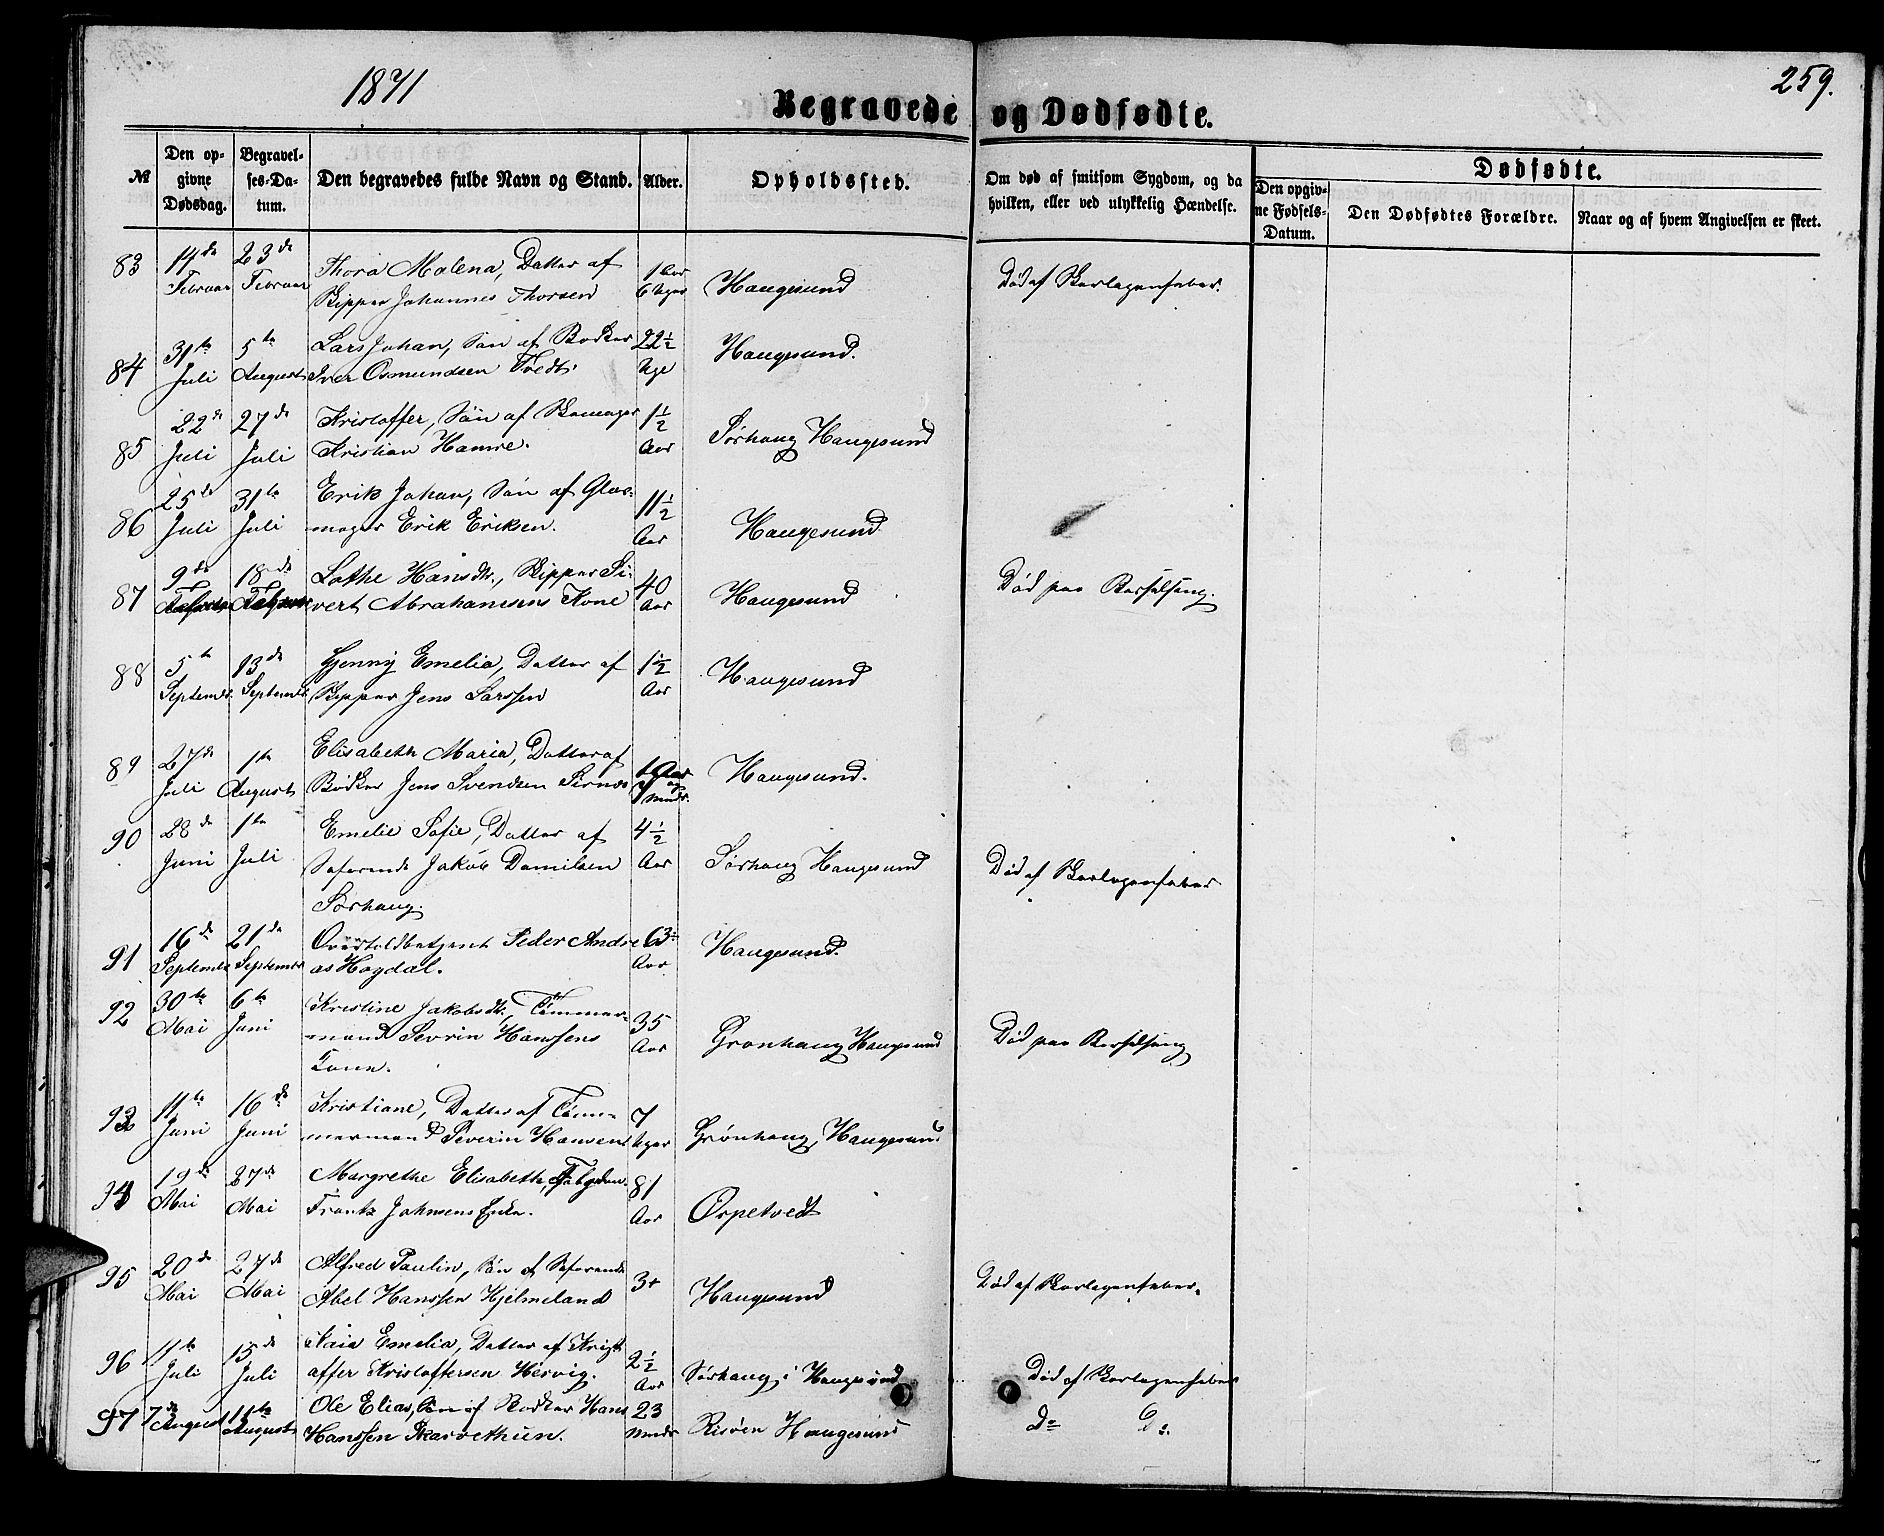 1871
259.
Begravede og Dødfødte.
№
Den op-
givne
Dødsdag.
Begravel-
ses-Da-
tum.
Den begravedes fulde Navn og Stand.
Alder.
Opholdssted.
Om død af smitsom Sygdom, og da
hvilken, eller ved ulykkelig Hændelse.
Dødfødte.
Den opgiv-
ne Fødsels-
Datum.
Den Dødfødtes Forældre.
Naar og af hvem Angivelsen er skeet.
83 14de Februar 23de Februar Thora Malena, Datter af 1 Aar
Skipper Johannes Thorsen 6 Uger Haugesund Død af Skarlagensfeber.
84 31te Juli 5te August Lars Johan, Søn af Bødker 22½
Iver Osmundsen Tvedt. Uge Haugesund.
85 22de Juli 27de Juli Kristoffer, Søn af Skomager 1½
Kristian Hamre. Aar Sørhaug Haugesund
86 25de Juli 31te Juli Erik Johan, Søn af Glas-
mager Erik Eriksen. 11½ Aar Haugesund
87 9de 18de Lothe Hansdtr., Skipper Si-
vert Abrahamsens Kone 40 Aar Haugesund Død paa Barselseng.
88 5te Septembr. 13de Septembr. Jenny Emelia, Datter af 1½
Skipper Jens Larssen Aar Haugesund
89 27de Juli 1te August Elisabeth Maria, Datter af
Bødker Jens Svendsen 1 Aar og 7 Mndr. Haugesund.
90 28de Juni 1te Juli Emelie Sofie, Datter af 4½
Søfarende Jakob Danielsen Aar Sørhaug Haugesund Død af Skarlagensfeber
Sørhaug.
91 16de Septembr 21de Septembr Overtoldbetjent Peder Andre 63
as Hogdal. Aar Haugesund.
92 30te Mai 6te Juni Kristine Jakobsdtr., Tømmer-
mand Sevrin Hanssens 35 Aar Grønhaug Haugesund Død paa Barselseng
Kone.
93 11te Juni 16de Juni Kristiane, Datter af Tøm-
mermand Severin Hansen 7 Uger Grønhaug, Haugesund
94 19de Mai 27de Mai Margrethe Elisabeth, 81
Frantz Johnsens Enke. Aar Ørpetvedt
95 20de Mai 27de Mai Alfred Paulin, Søn af Søfarende
Abel Hanssen Hjelmeland 3 Haugesund Død af Skarlagensfeber.
96 11te Juli 15de Juli Emelia, Datter af Krist
offer Kristoffersen Hervig. 2½ Aar Sørhaug i Haugesund Død af Skarlagensfeber
97 7de August 11te August Ole Elias, Søn af Bødker Hans 23
Hanssen Skarvethun. Mndr Risøen Haugesund Do Do.